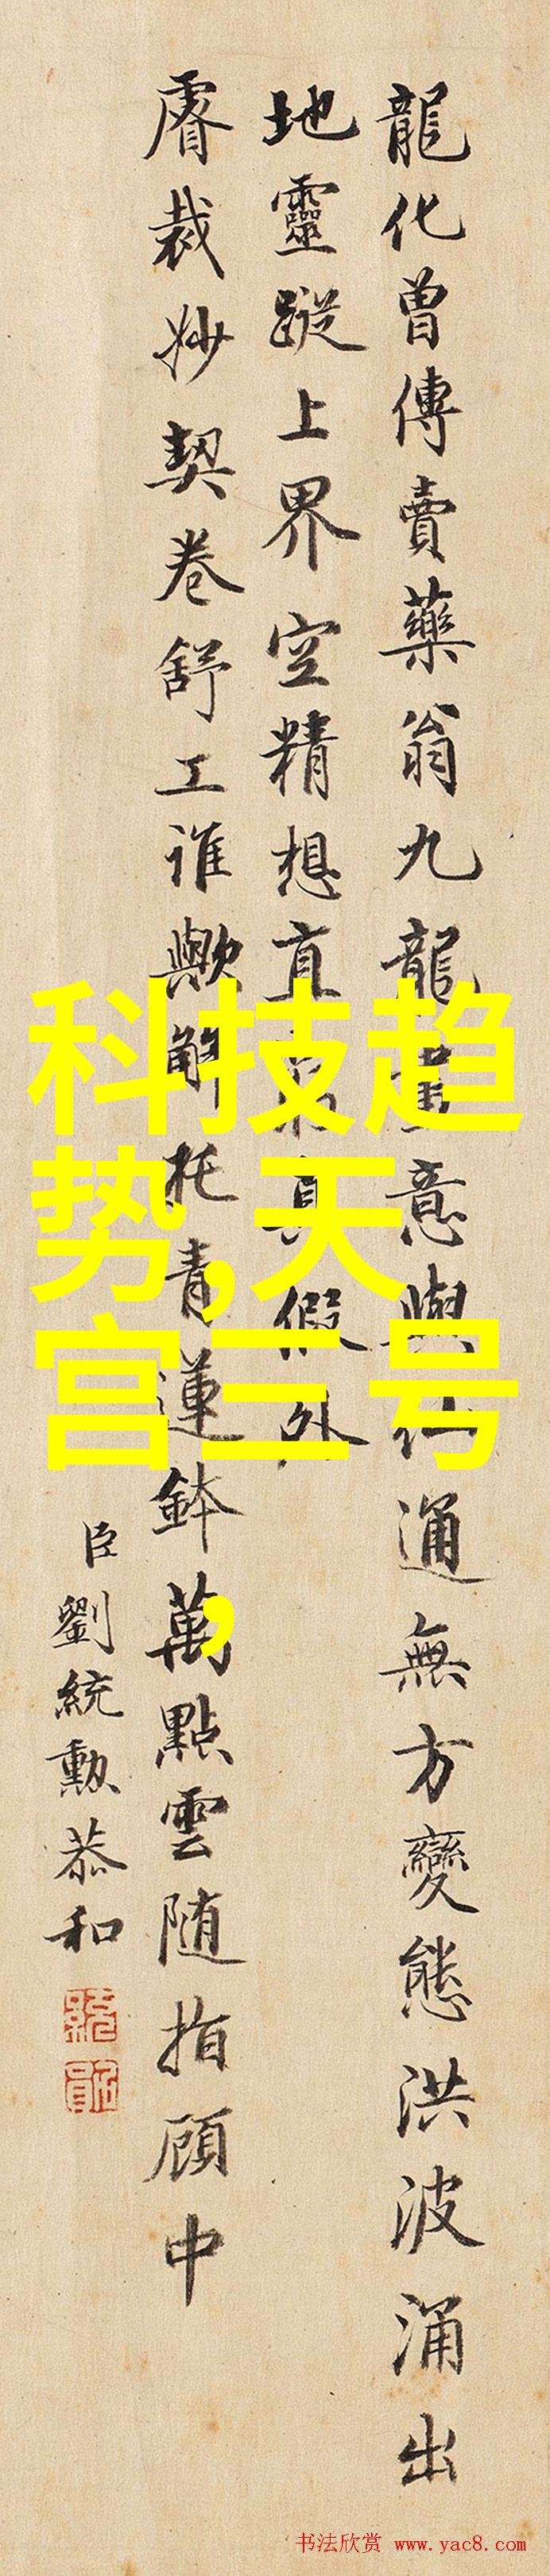 龍化曾傳賣藥翁九龍畫意與通無方變態洪波涌出
地靈蹤上界空精想直真假外
睿裁妙契卷舒工誰歟解托青蓮鉢萬點雲随指顧中
臣劉統勳恭和
科技趋
势,天
宫三号
,
书法欣赏 www.yac8.com